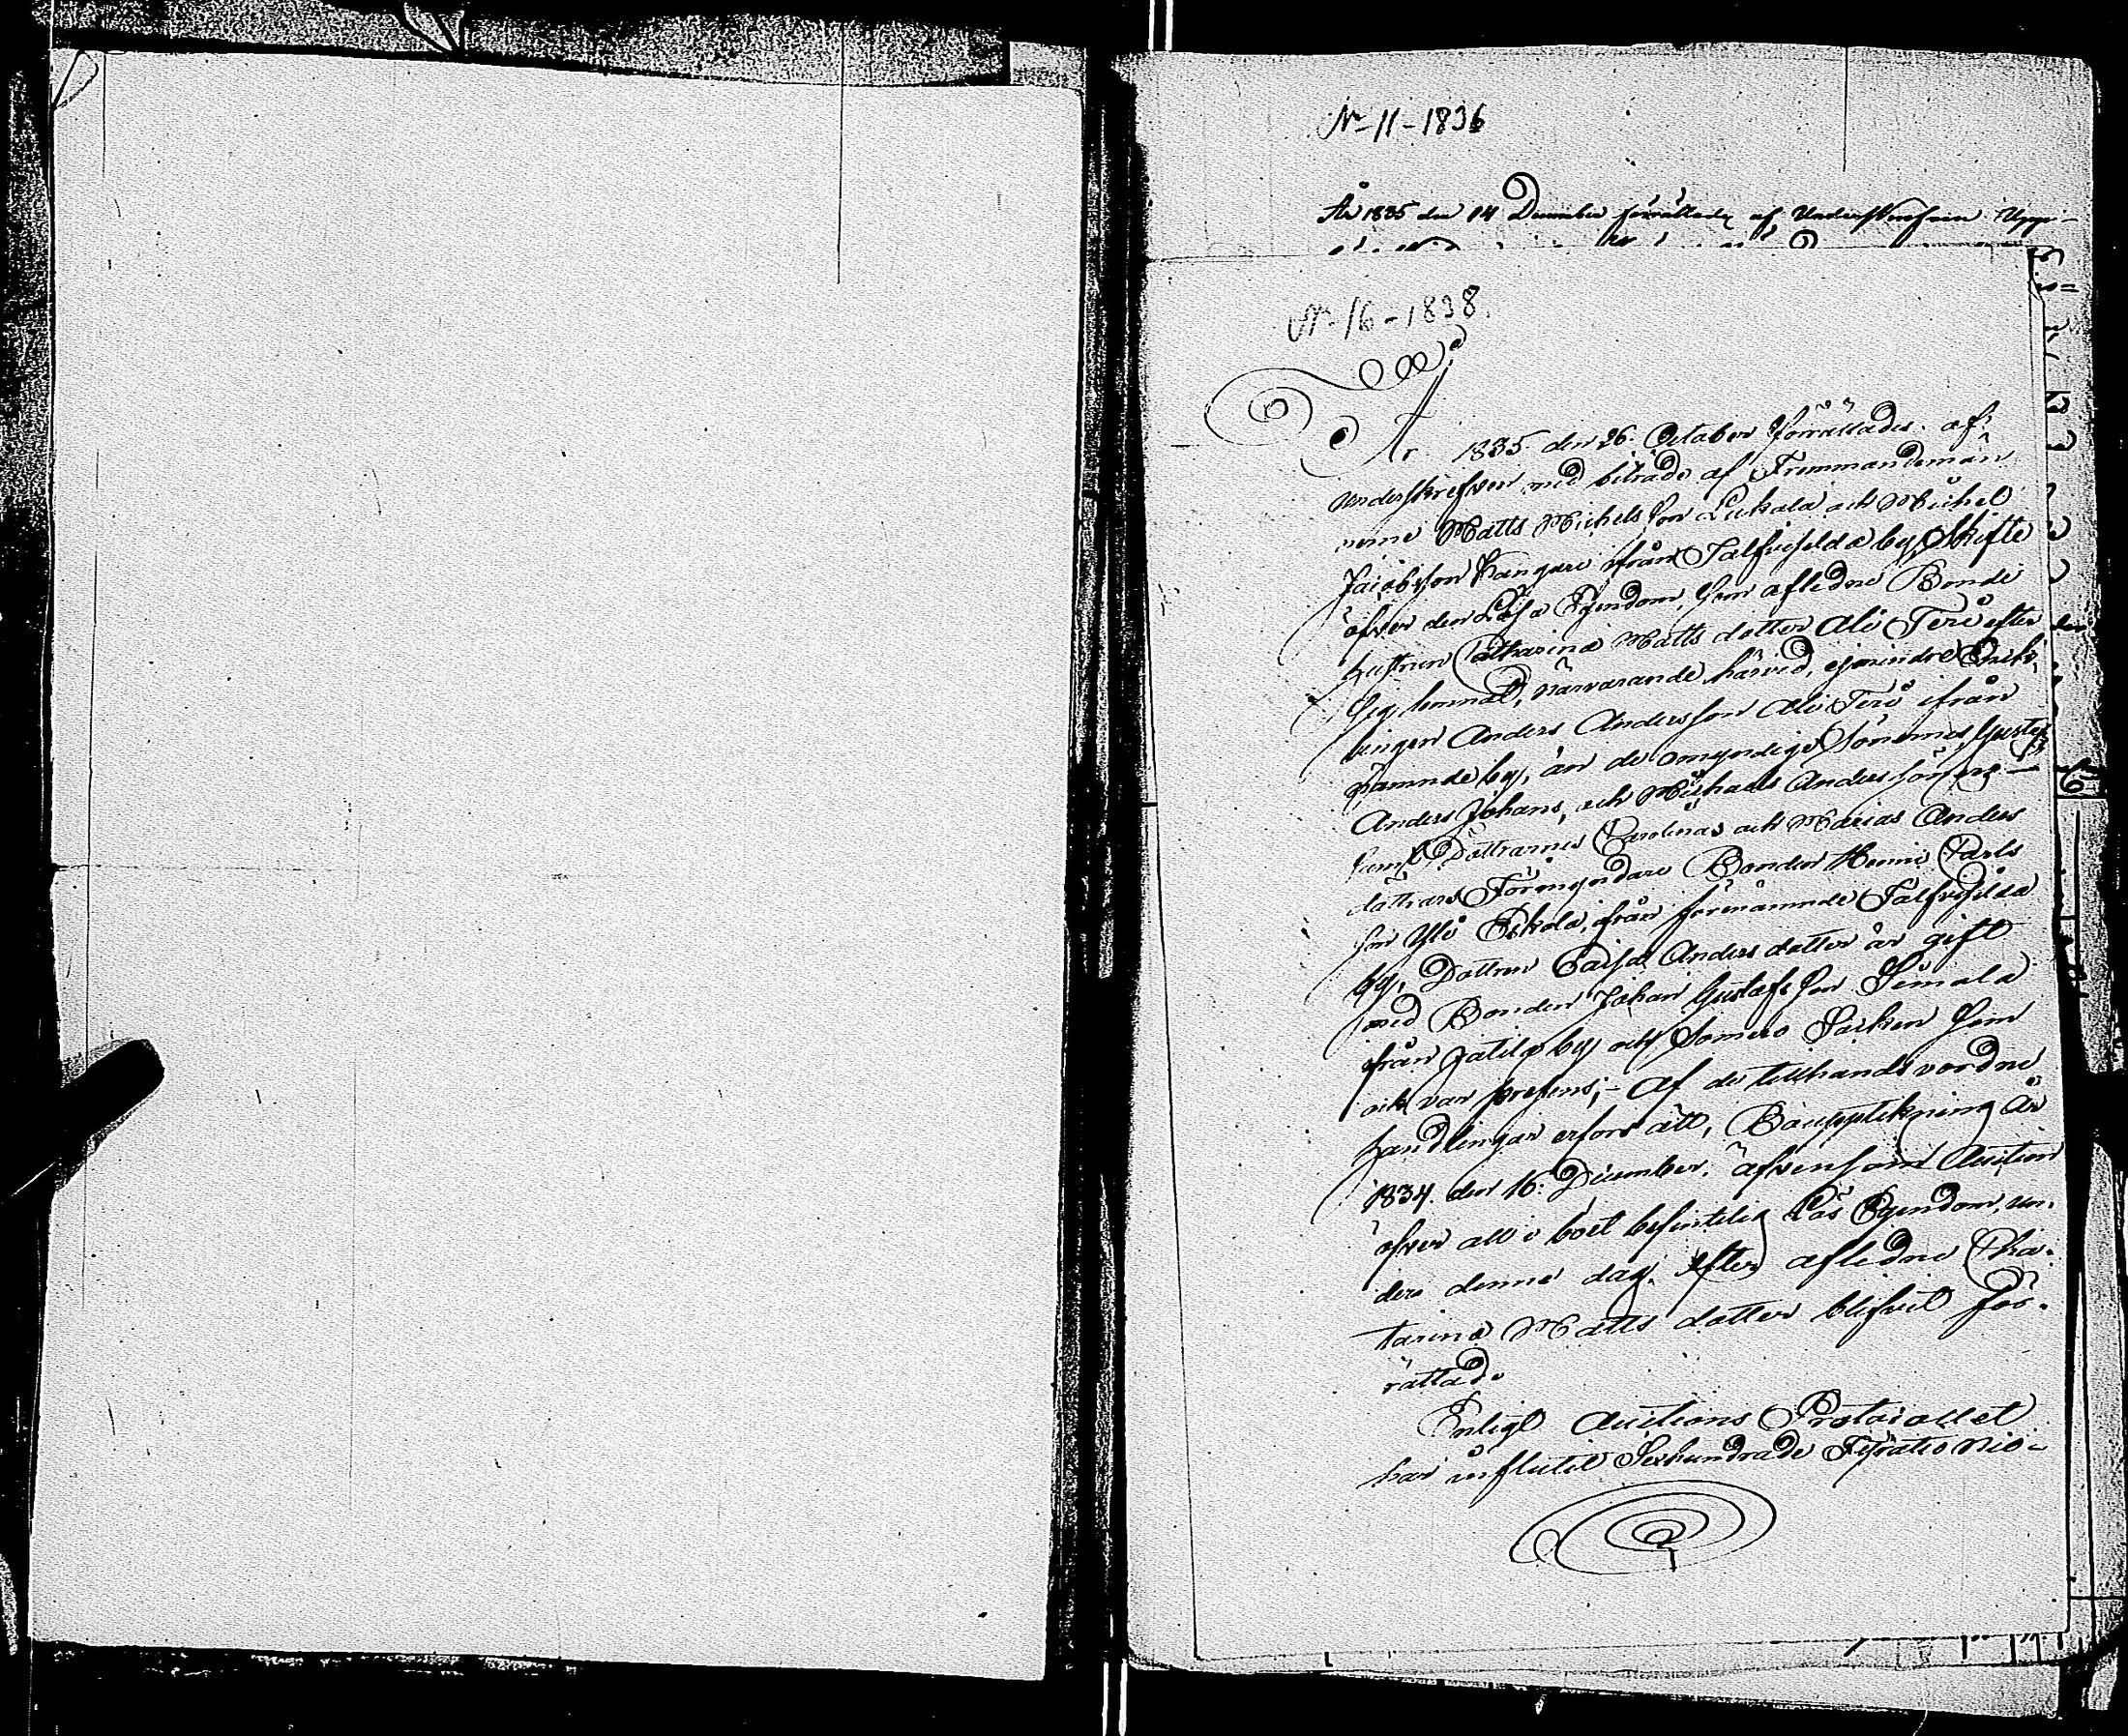 No 11 - 1836
År 1835 den 14 December förrättade af Underskrefven Upp-
No 16 - 1838.
År 1835 den 26 October förrättades af
underskrefven med biträde af Fremmandemän
nerne Matts Michelsson Lukala och Michel
Jacobsson Kangare ifrån Salfvisilda by, Skifte
öfver den Lösa Egendom, som aflidne Bonde
hustrun Catharina Matts dotter Ali Tere efter
sig lemnat, närvarande härvid, ej mindre Enk-
lingen Anders Andersson Ali Tere ifrån
nämnde by, än de omyndige Sönernes Gustaf
Anders Johans, och Michaels Anders söners
samt Döttrarnes Carolinas och Marias Anders
döttrars Förmyndare Bonden Henric Carls
son Yli Eskola, ifrån förenämnde Salfvisilda
by, Dottren Caisa Anders dotter är gift
med Bonden Johan Gustafsson Simala
ifrån Jatila by och Somero Socken som
ock var presens; - Af de tillhandi vordne
handlingar erfors att, Bouppteckning År
1834. den 16. December, äfvensom Auction
öfver all i boet befintelig Lös Egendom, un-
der denne dag, efter aflidne Cha-
tarina Matts dotter blifvit för-
rättade
Enligt Auctions Protocollet
har influtit Sexhundrade Fyratio nio-